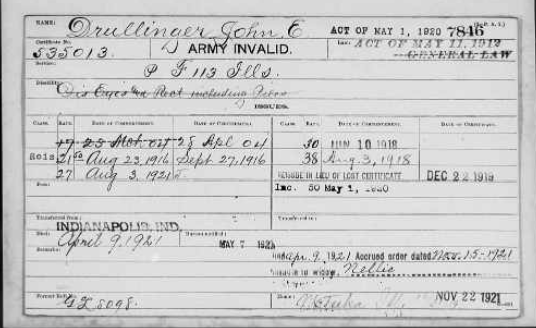 NAME: Drullinger John E ACT OF MAY 1, 1920 7846
Certificate No. 535013. ARMY INVALID. Law: ACT OF MAY 11, 1912
Service: P F 113 Ills. GENERAL LAW
Disability: Dis Eyes Rect including Piles
CLASS. RATE. DATE OF COMMENCEMENT. DATE OF CERTIFICATE. CLASS. RATE. DATE OF COMMENCEMENT. DATE OF CERTIFICATE.
17 23 Mch 04 25 Apl 04 30 JUN 10 1918
Reis 21 50 Aug 23, 1916 Sept 27, 1916 38 Aug. 3, 1918
27 Aug 3, 1921 REISSUE IN LIEU OF LOST CERTIFICATE DEC 22 1919
Inc. 50 May 1, 1920
Transferred from
INDIANAPOLIS, IND.
Died: April 9, 1921 MAY 7 1921
Remarks: Apr. 9, 1921 Accrued order dated Nov. 15-1921
to widow, Nellie
Former Roll No. NOV 22 1921